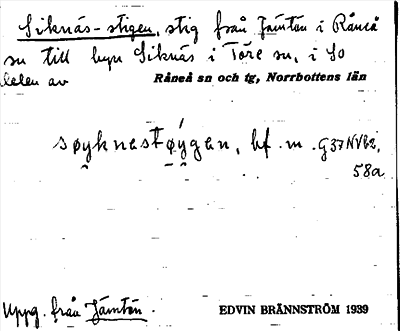 Siknäs-stigen, stig från Jämtön i Råneå
sn till byn Siknäs i Töre sn, i So
delen av Råneå sn och tg, Norrbottens län
søyknestøýgen, bf. m. G37NVb2,
58a
Uppg. från Jämtön.
EDVIN BRÄNNSTRÖM 1939